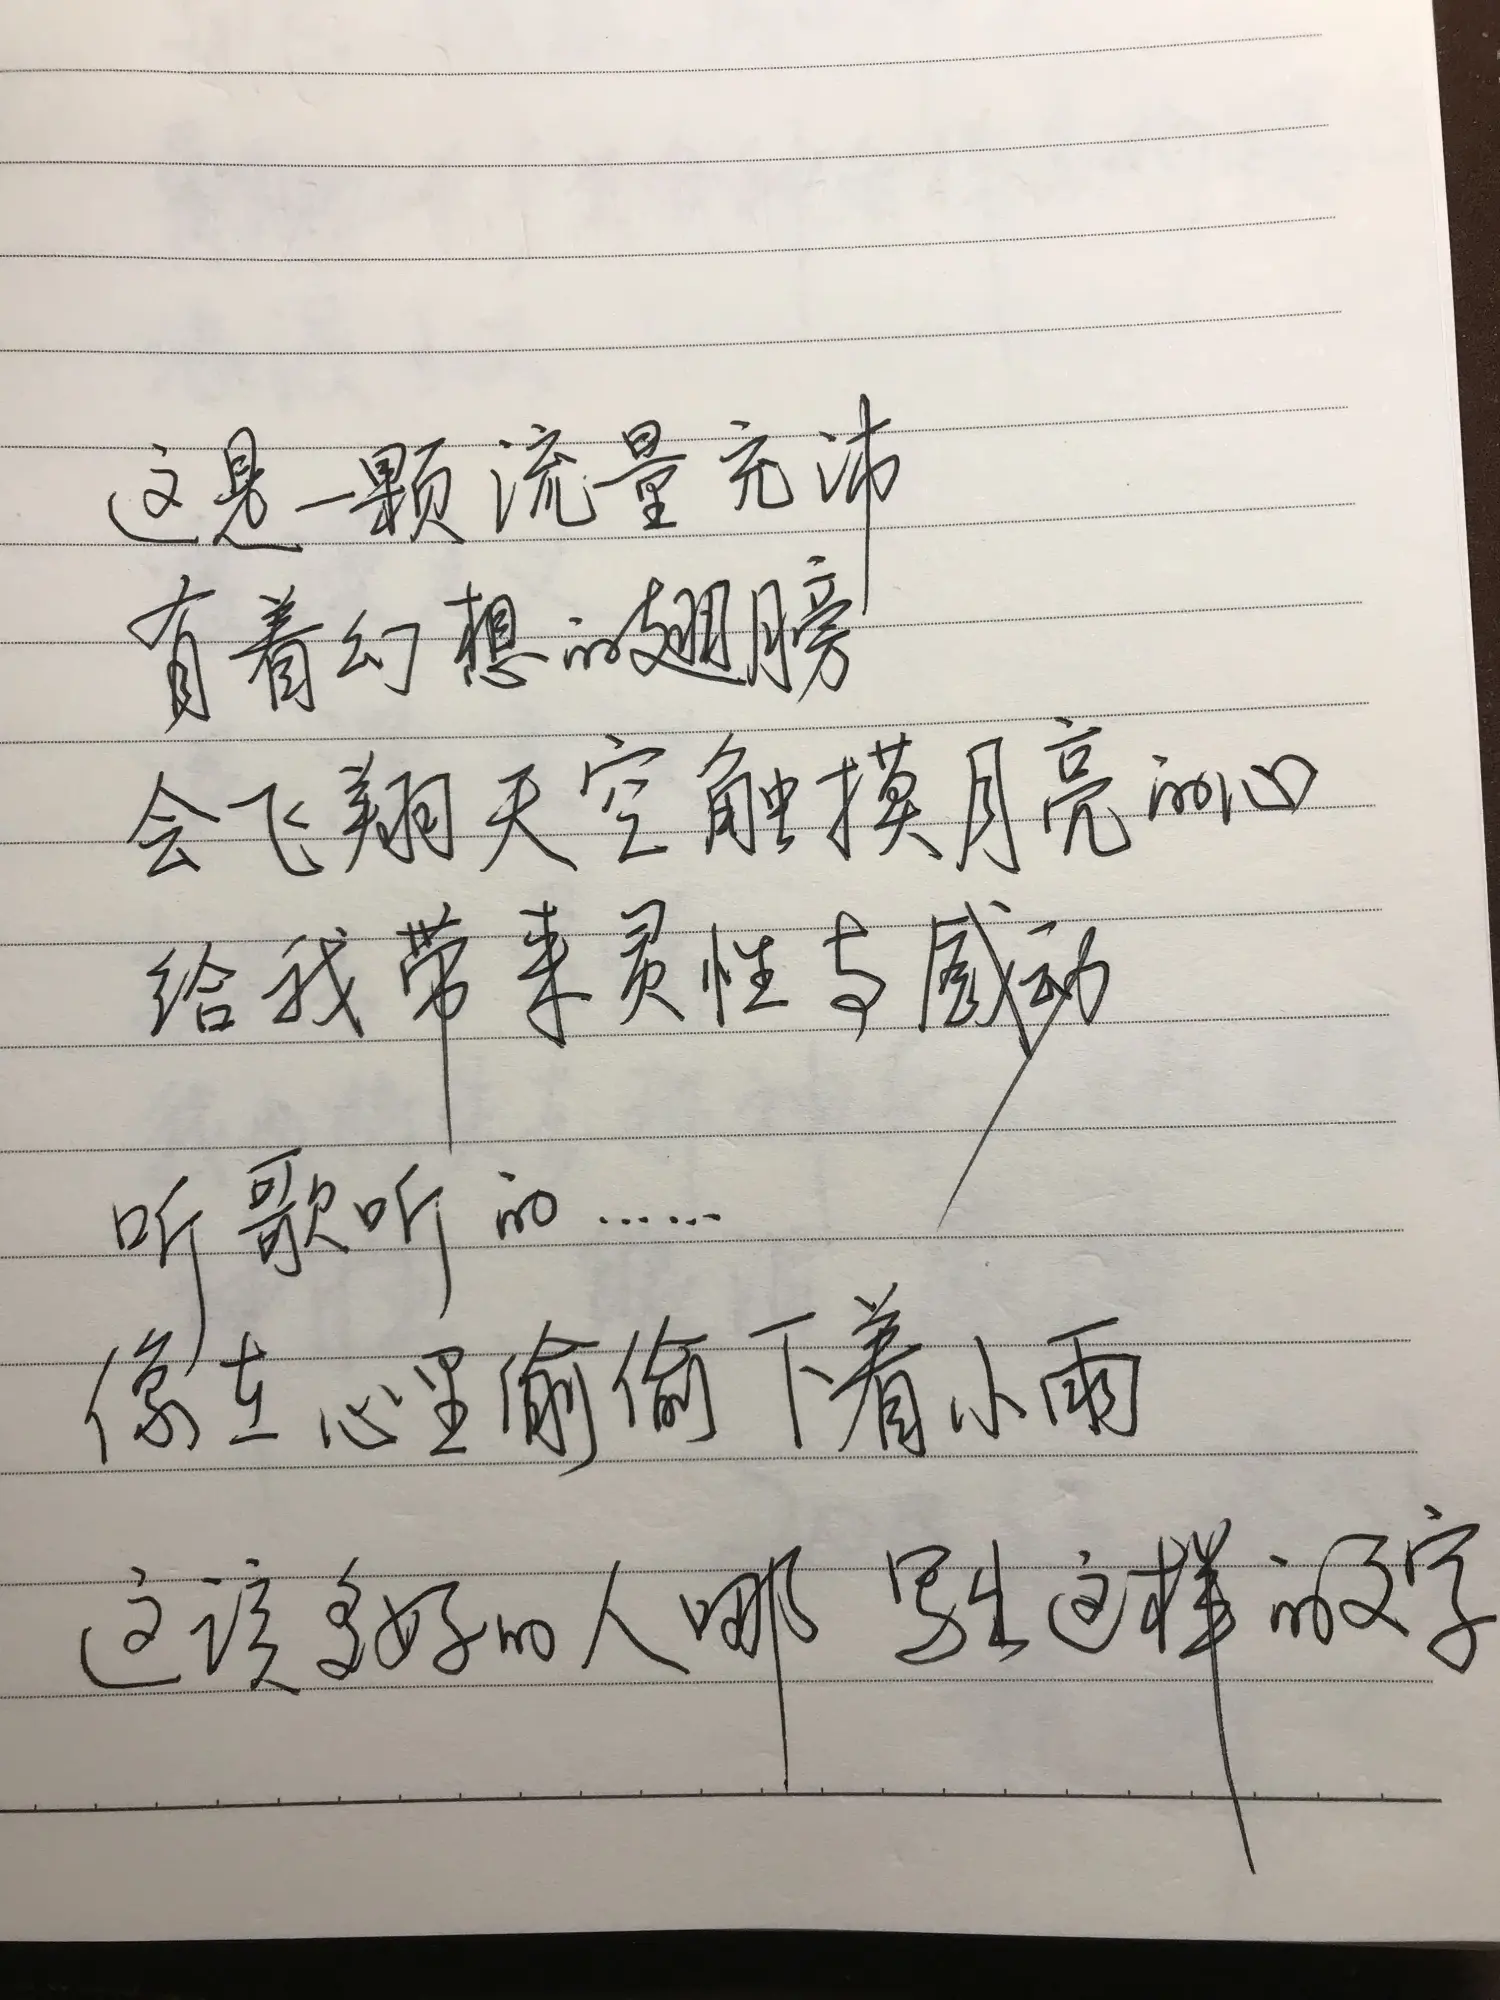 这是一颗流量充沛
有着幻想的翅膀
会飞翔天空触摸月亮的心
给我带来灵性与感动
听歌听的……
像在心里偷偷下着小雨
这该多好的人哪 写出这样的文字